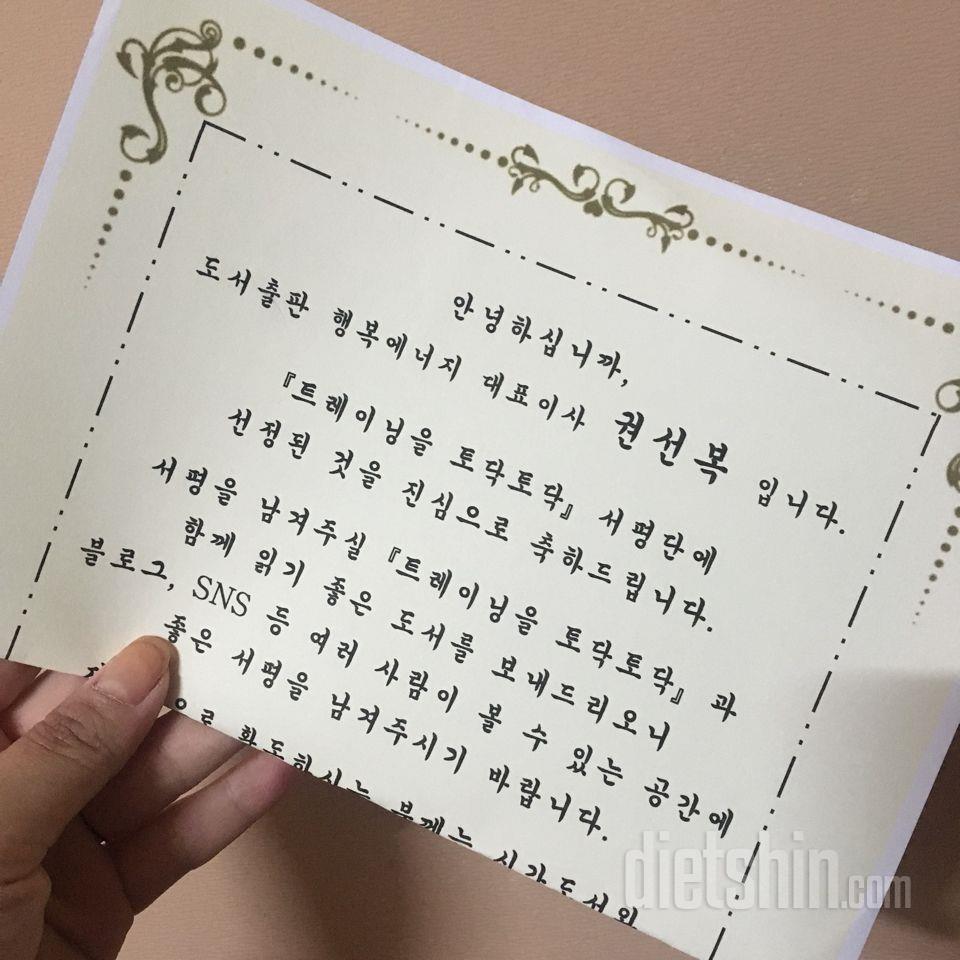 안녕하십니까,
도서출판 행복에너지 대표이사 권선복 입니다.
『트레이닝을 토닥토닥』 서평단에
선정된 것을 진심으로 축하드립니다.
서평을 남겨주실 『트레이닝을 토닥토닥』 과
함께 읽기 좋은 도서를 보내드리오니
블로그, SNS 등 여러 사람이 볼 수 있는 공간에
좋은 서평을 남겨주시기 바랍니다.
분께는
dietshin.com